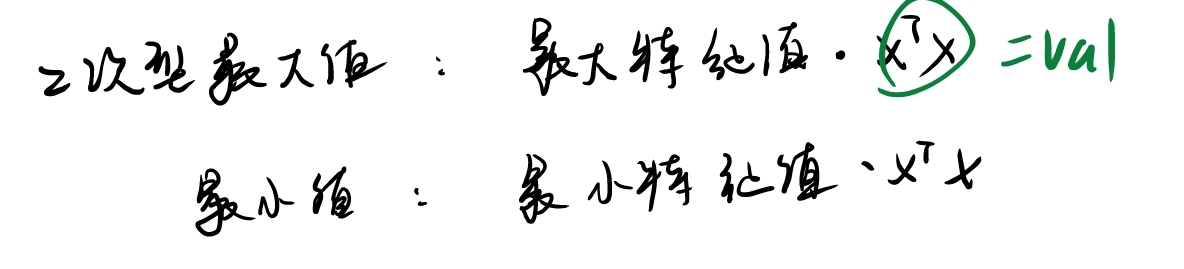 二次型最大值 : 最大特征值 · xᵀx = val
最小值 : 最小特征值 · xᵀx